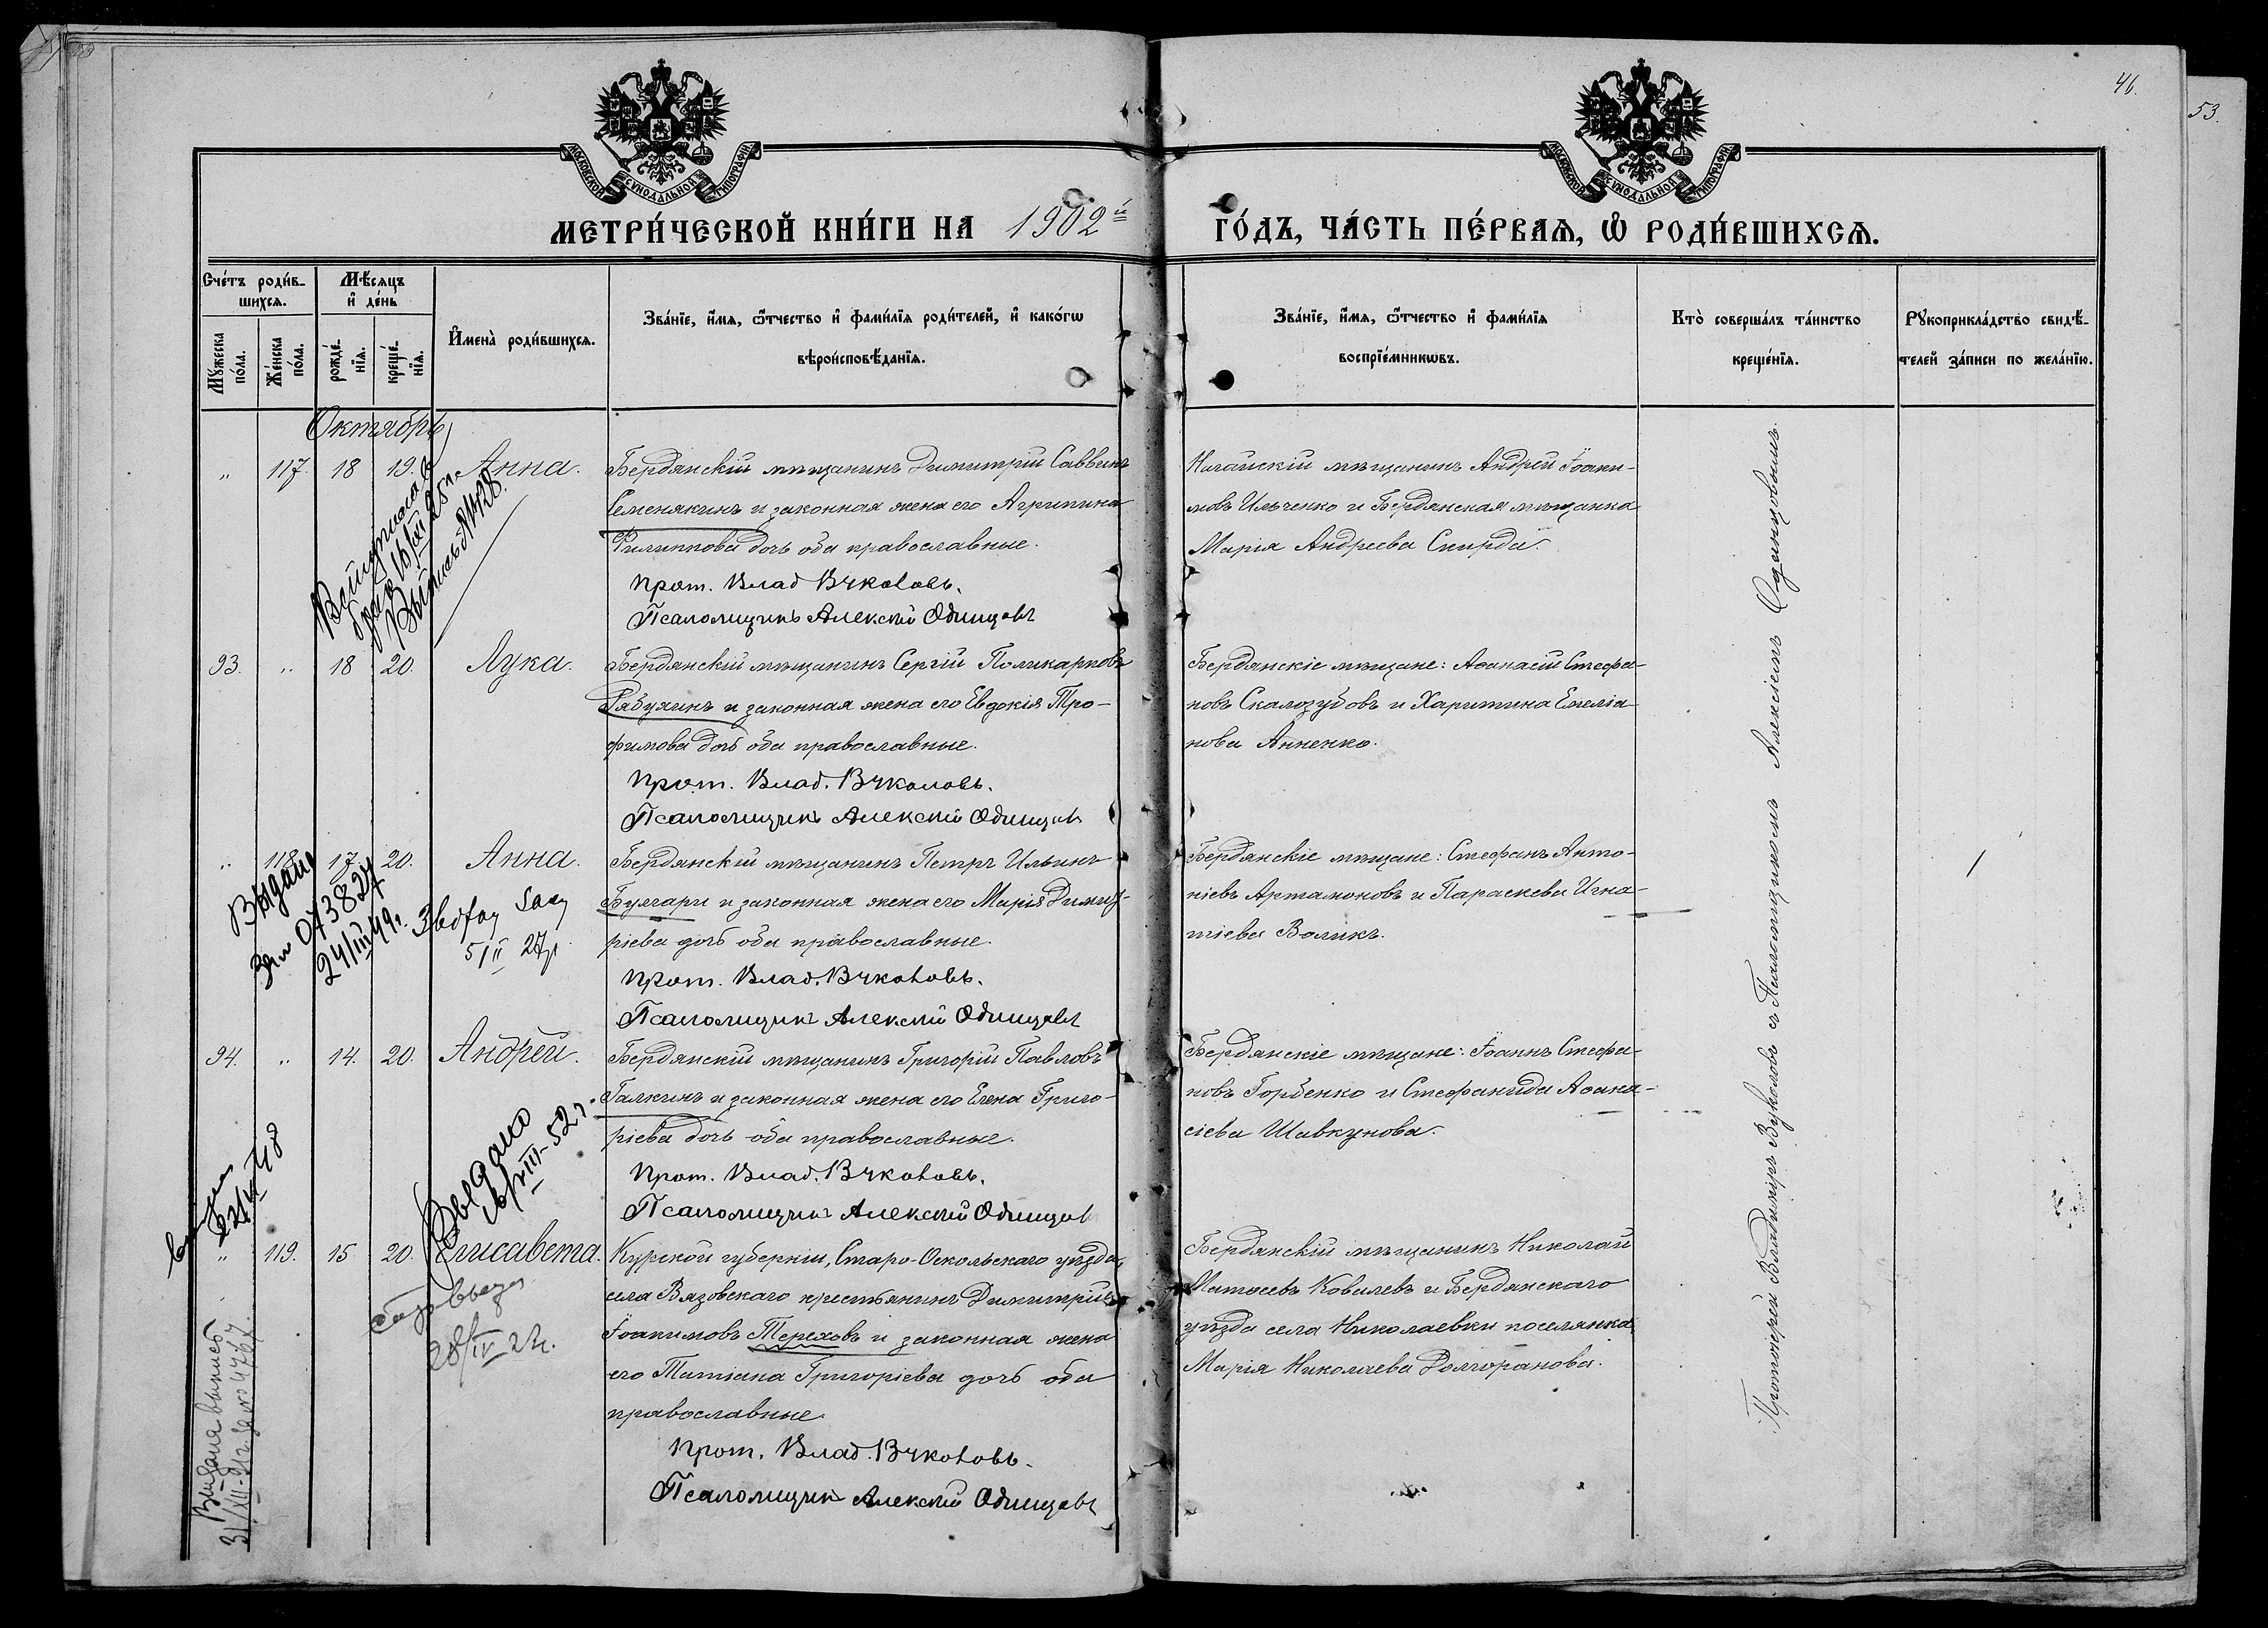 46.
53.
МОСКОВСКОЙ СѴНОДАЛЬНОЙ ТИПОГРАФІИ
МОСКОВСКОЙ СѴНОДАЛЬНОЙ ТИПОГРАФІИ
МЕТРИ́ЧЕСКОЙ КНИ́ГИ НА 1902й
ГО́ДЪ, ЧА́СТЬ ПЕ́РВАѦ, Ѡ РОДИ́ВШИХСѦ.
Сче́тъ роди́в-
шихсѧ.
Мꙋ́жеска по́ла.
Же́нска по́ла.
Мѣ́сѧцъ
и҆ де́нь
рожде́-
нїѧ.
креще́-
нїѧ.
И҆мена̀ роди́вшихсѧ.
Зва́нїе, и҆́мѧ, ѻ҆́тчество и҆ фами́лїѧ роди́телей, и҆ како́гѡ
вѣроисповѣ́данїѧ.
Зва́нїе, и҆́мѧ, ѻ҆́тчество и҆ фами́лїѧ
воспрїе́мникѡвъ.
Кто̀ соверша́лъ та́инство
креще́нїѧ.
Рꙋкоприкла́дство свидѣ́-
телей за́писи по жела́нїю.
Октябрь
" 117. 18 19. Анна.
Бердянскій мѣщанинъ Димитрій Саввинъ
Семенякинъ и законная жена его Агрипина
Филиппова дочь оба православные.
Прот. Влад Вуколовъ.
Псаломщикъ Алексій Одинцовъ
Ногайскій мѣщанинъ Андрей Іоаки-
мовъ Ильченко и Бердянская мѣщанка
Марія Андреева Скирда.
брака 16/XII 25 г.
Выпись №428.
93. " 18 20. Лука.
Бердянскій мѣщанинъ Сергій Поликарповъ
Рябухинъ и законная жена его Евдокія Тро-
фимова дочь оба православные.
Прот. Влад. Вуколовъ.
Псаломщикъ Алексій Одинцовъ
Бердянскіе мѣщане: Аѳанасій Стефа-
новъ Скалозубовъ и Харитина Емеліа-
нова Анненко.
" 118. 17 20. Анна.
Бердянскій мѣщанинъ Петръ Ильинъ
Булгари и законная жена его Марія Димит-
ріева дочь оба православные.
Прот. Влад. Вуколовъ.
Псаломщикъ Алексій Одинцовъ
Бердянскіе мѣщане: Стефанъ Анто-
ніевъ Артамоновъ и Параскева Игна-
тіева Воликъ.
Выдан
073827
24/III 49 г.
5/II 27 г.
94. " 14. 20. Андрей.
Бердянскій мѣщанинъ Григорій Павловъ
Галкинъ и законная жена его Елена Григо-
ріева дочь оба православные.
Прот. Влад. Вуколовъ.
Псаломщикъ Алексій Одинцовъ
Бердянскіе мѣщане: Іоаннъ Стефа-
новъ Горбенко и Стефанида Аѳана-
сіева Шавкунова.
Выдано
III-52 г.
" 119. 15 20. Елисавета.
Курской губерніи, Старо-Оскольскаго уѣзда,
села Вязовскаго крестьянинъ Димитрій
Іоакимовъ Тереховъ и законная жена
его Татіана Григоріева дочь оба
православные.
Прот. Влад. Вуколовъ.
Псаломщикъ Алексій Одинцовъ
Бердянскій мѣщанинъ Николай
Матѳеевъ Ковалевъ и Бердянскаго
уѣзда села Николаевки поселянка
Марія Николаева Долгоранова.
28/IV 22 г.
Выдана выпись
31/XII-91г. за № 4767.
Протоіерей Владимиръ Вуколовъ съ Псаломщикомъ Алексіемъ Одинцовымъ.